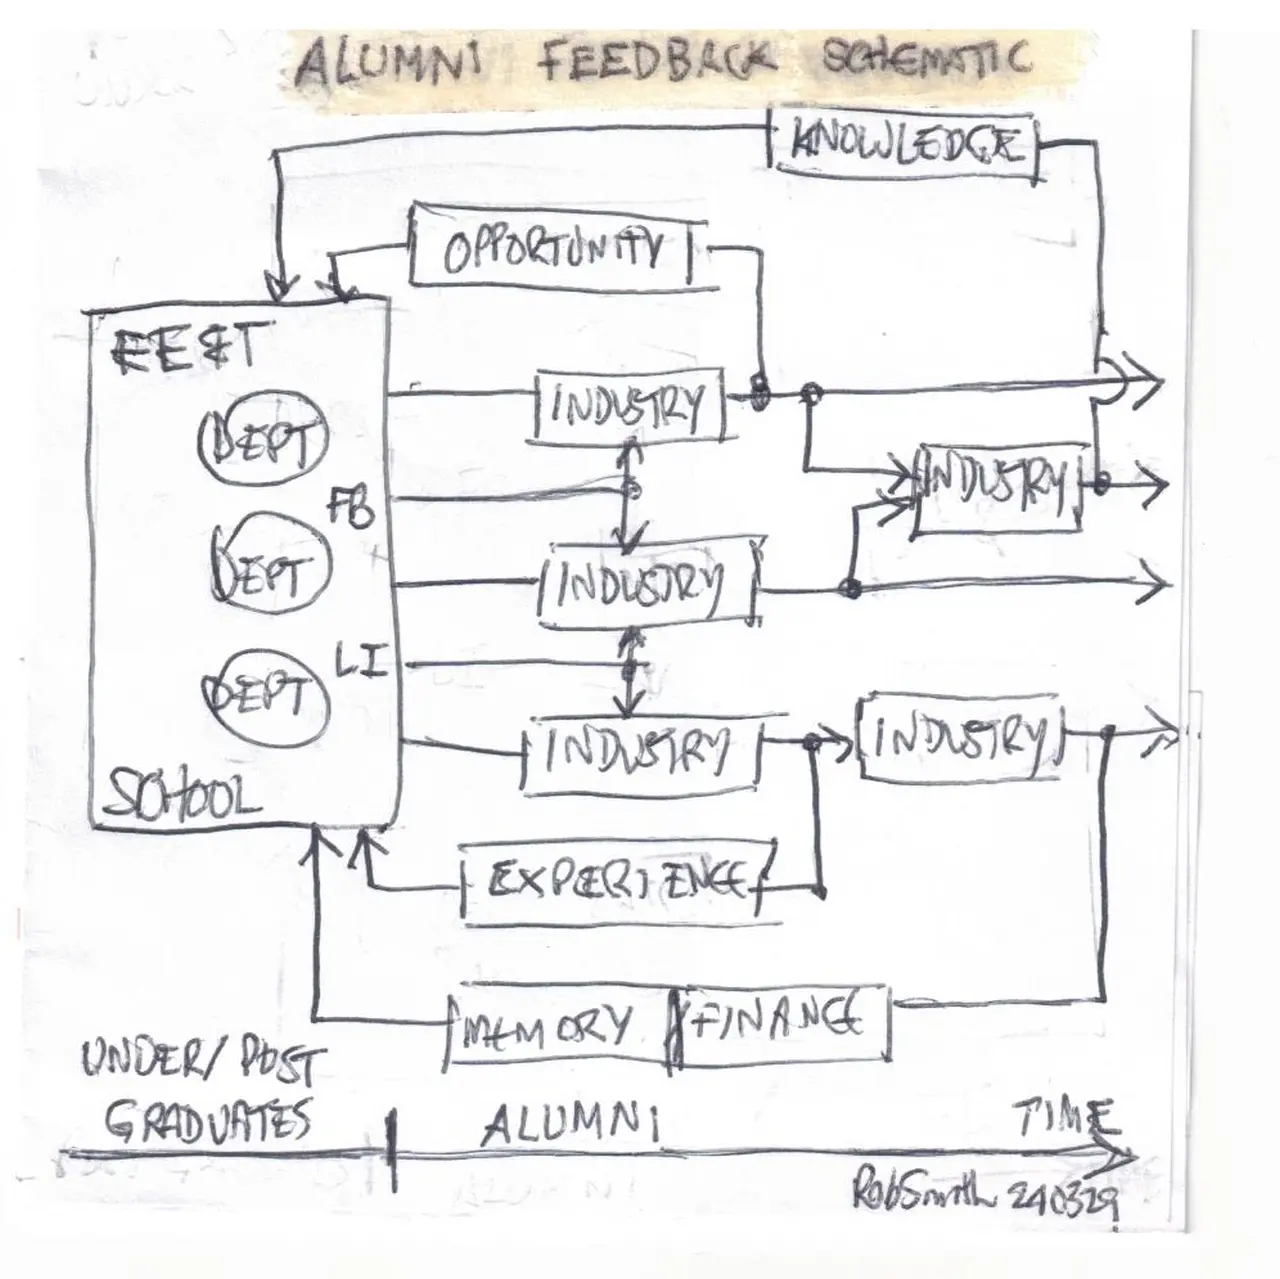 ALUMNI FEEDBACK SCHEMATIC
KNOWLEDGE
OPPORTUNITY
EE&T
DEPT
FB
DEPT
LI
DEPT
SCHOOL
INDUSTRY
INDUSTRY
INDUSTRY
INDUSTRY
INDUSTRY
EXPERIENCE
MEMORY
FINANCE
UNDER/POST
GRADUATES
ALUMNI
TIME
RobSmith 240329